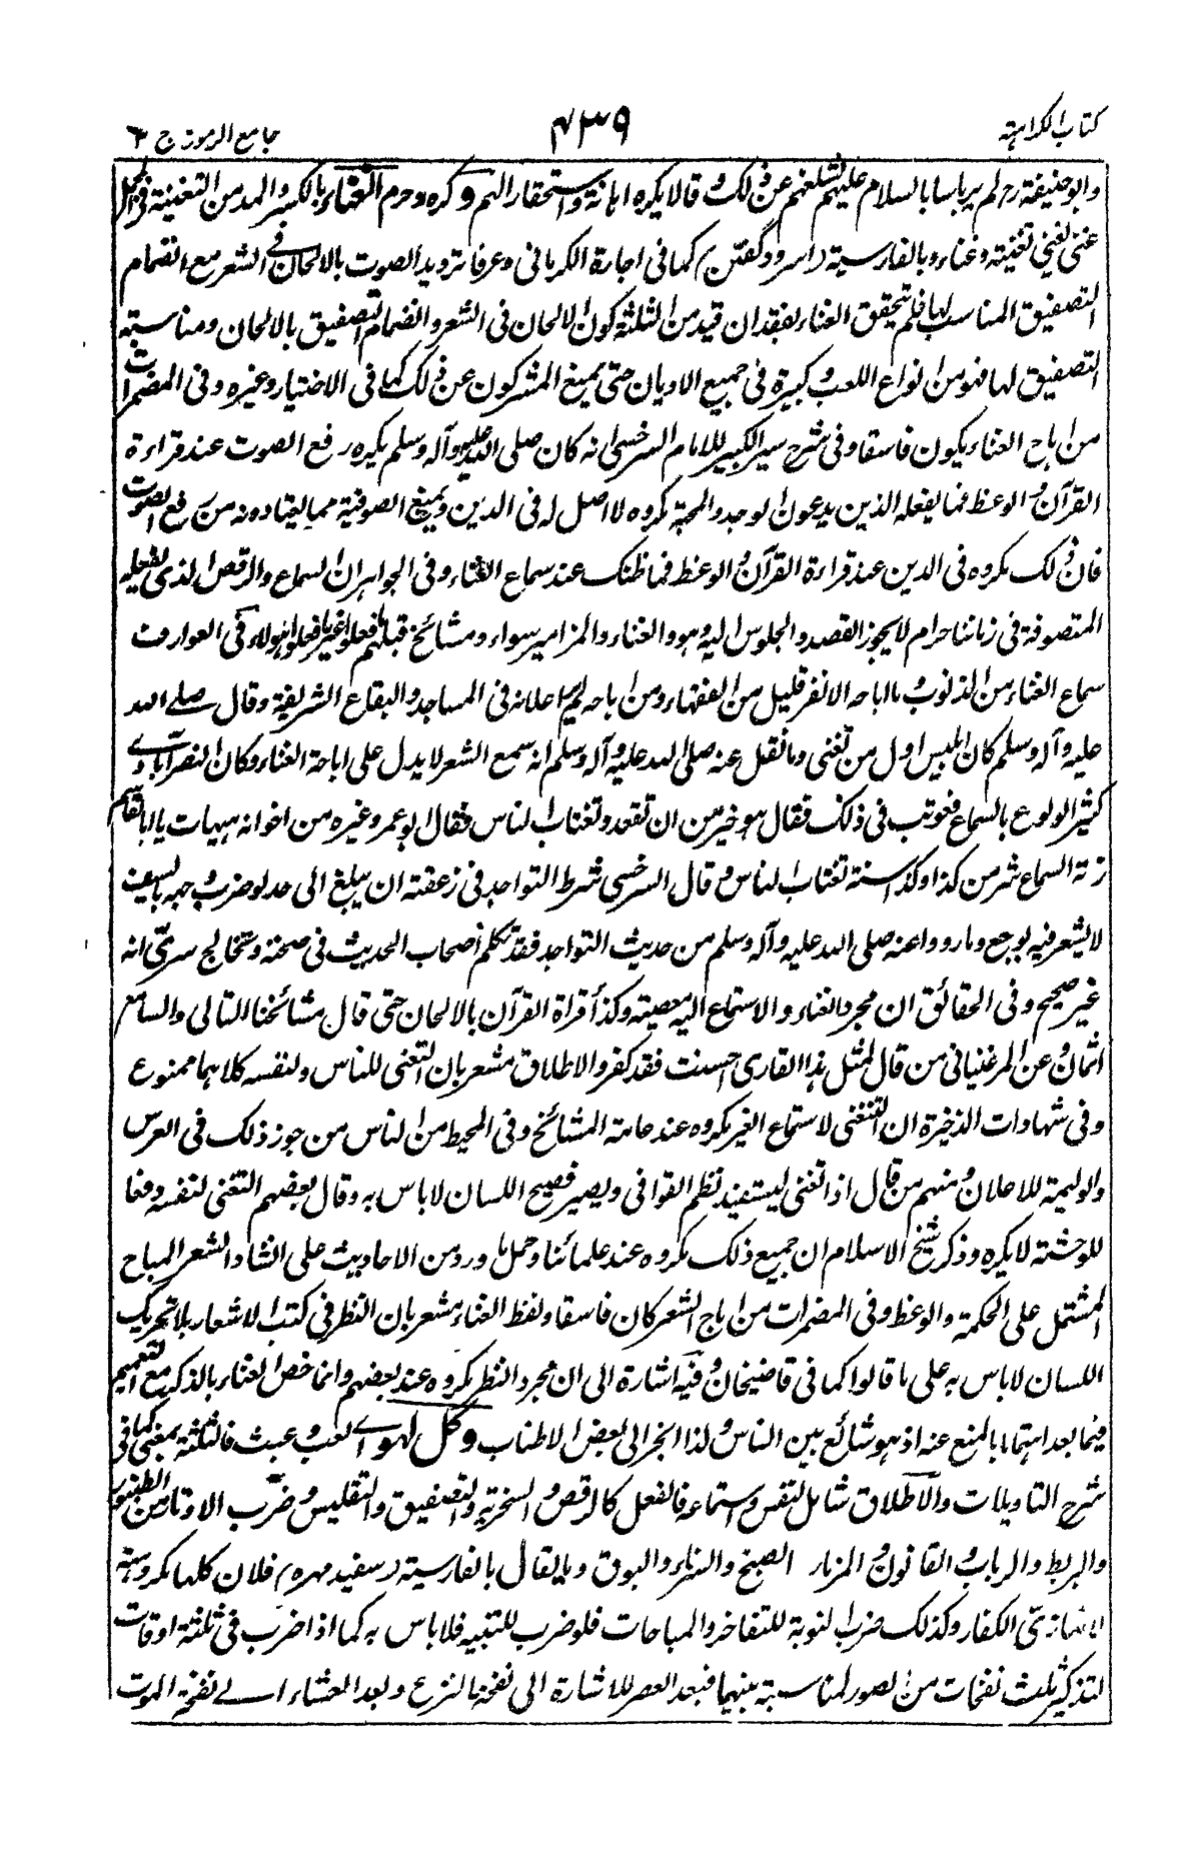 كتاب الكراهية
٤٣٩
جامع الرموز ج ٢
وابو حنيفة رح لم ير باسا بالسلام عليهم لشغلهم عن ذلك وقالا يكره اهانة واستحقارا لهم وكره وحرم الغناء بالكسر والمد من التغنية
غنى يغنى تغنية وغناء وبالفارسية (سرود گفتن) كما فى اجارة الكرمانى وعرفا ترديد الصوت بالالحان فى الشعر مع انضمام
التصفيق المناسب لها فلم يتحقق الغناء بفقدان قيد من الثلثة كون الالحان فى الشعر وانضمام التصفيق بالالحان ومناسبة
التصفيق لها فهو من انواع اللعب وكبيرة فى جميع الاديان حتى يمنع المشركون عن ذلك كما فى الاختيار وغيره وفى المضمرات
من اباح الغناء يكون فاسقا وفى شرح سير الكبير للامام السرخسى انه كان صلى الله عليه وآله وسلم يكره رفع الصوت عند قراءة
القرآن والوعظ فما يفعله الذين يدعون الوجد والمحبة مكروه لا اصل له فى الدين ويمنع الصوفية مما يعتادونه من رفع الصوت
فان ذلك مكروه فى الدين عند قراءة القرآن والوعظ فما ظنك عند سماع الغناء وفى الجواهر ان السماع والرقص الذى يفعله
المتصوفة فى زماننا حرام لا يجوز القصد والجلوس اليه وهو والغناء والمزامير سواء ومشائخ قبلهم فعلوا غير ما فعلوا هؤلاء وفى العوارف
سماع الغناء من الذنوب ما اباحه الا نفر قليل من الفقهاء ومن اباحه لم ير اعلانه فى المساجد والبقاع الشريفة وقال صلے الله
عليه وآله وسلم كان ابليس اول من تغنى وما نقل عنه صلى الله عليه وآله وسلم انه سمع الشعر لا يدل على اباحة الغناء وكان النصرآبادے
كثير الولوع بالسماع فعوتب فى ذلك فقال هو خير من ان تقعد وتغتاب الناس فقال ابو عمرو وغيره من اخوانه هيهات يا ابا القاسم
زلة السماع شر من كذا وكذا سنة تغتاب الناس وقال السرخسى شرط التواجد فى زعقته ان يبلغ الى حد لو ضرب وجهه بالسيف
لا يشعر فيه بوجع وما رووا عنه صلى الله عليه وآله وسلم من حديث التواجد فقد تكلم اصحاب الحديث فى صحته وتخالج سرى انه
غير صحيح وفى الحقائق ان مجرد الغناء والاستماع اليه معصية وكذا قراة القرآن بالالحان حتى قال مشائخنا التالى والسامع
اثمان وعن المرغنيانى من قال لمثل هذا القارى احسنت فقد كفر والاطلاق مشعر بان التغنى للناس ولنفسه كلاهما ممنوع
وفى شهادات الذخيرة ان التغنى لاستماع الغير مكروه عند عامة المشائخ وفى المحيط من الناس من جوز ذلك فى العرس
والوليمة للاعلان ومنهم من قال اذا تغنى ليستفيد نظم القوافى ويصير فصيح اللسان لا باس به وقال بعضهم التغنى لنفسه دفعا
للوحشة لا يكره وذكر شيخ الاسلام ان جميع ذلك مكروه عند علمائنا وحمل ما ورد من الاحاديث على انشاد الشعر المباح
المشتمل على الحكمة والوعظ وفى المضمرات من اباح الشعر كان فاسقا ولفظ الغناء مشعر بان النظر فى كتب الاشعار بلا تحريك
اللسان لا باس به على ما قالوا كما فى قاضيخان وفيه اشارة الى ان مجرد النظر مكروه عند بعضهم وانما خص الغناء بالذكر مع التعميم
فيما بعد اهتماما بالمنع عنه اذ هو شائع بين الناس ولذا انجر الى بعض الاطناب وكل لهو اے لعب وعبث فالثلثة بمعنى كما فى
شرح التاويلات والاطلاق شامل لنفس واستماعه فالفعل كالرقص والسخرية والتصفيق والتقليس وضرب الاوتار من الطنبور
والبربط والرباب والقانون والمزمار الصنج والسرناء والبوق وما يقال بالفارسية (سفيد مهره) فلان كلها مكروهة
لانها زى الكفار وكذلك ضرب النوبة للتفاخر والمباحات فلو ضرب للتنبيه فلا باس به كما اذا ضرب فى ثلثة اوقات
لتذكير ثلث نفخات من الصور لمناسبة بينهما فبعد العصر للاشارة الى نفخة النزع وبعد العشاء الے نفخة الموت